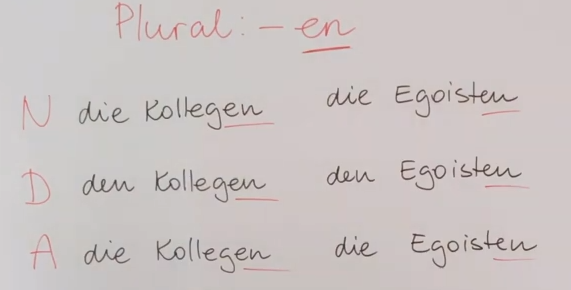 Plural: - en
N die Kollegen die Egoisten
D den Kollegen den Egoisten
A die Kollegen die Egoisten